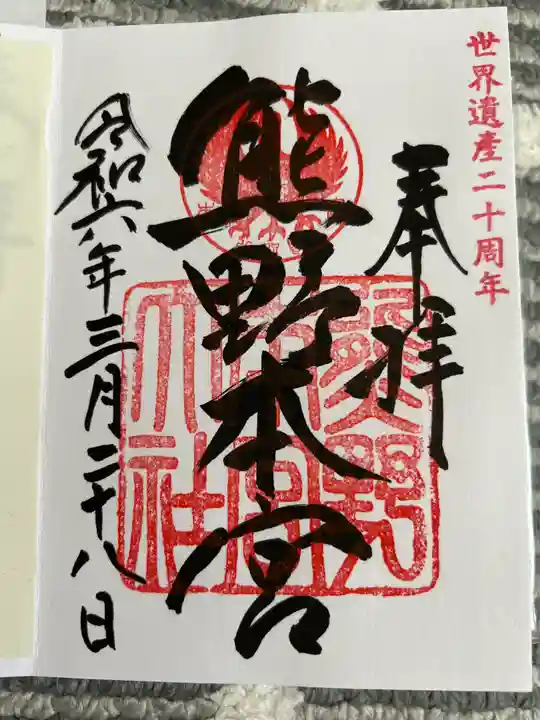 世界遺産二十周年
奉拝
熊野本宮
熊野本宮大社
令和六年三月二十八日